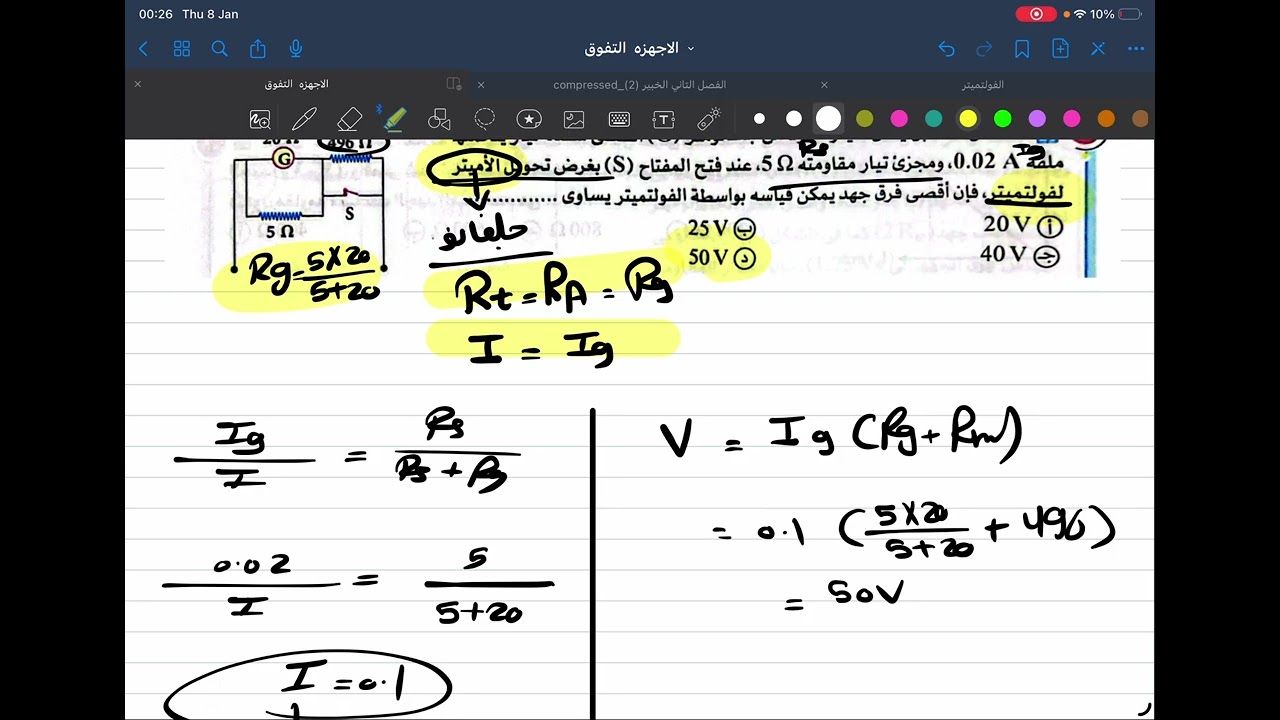 00:26 Thu 8 Jan
10%
الاجهزه التفوق
الاجهزه التفوق
compressed_(2) الفصل الثاني الخبير
الفولتميتر
496 Ω
G
S
5 Ω
Rs
Ig
ملفه 0.02 A، ومجزئ تيار مقاومته 5 Ω، عند فتح المفتاح (S) بغرض تحويل الأميتر
لفولتميتر، فإن أقصى فرق جهد يمكن قياسه بواسطة الفولتميتر يساوى ............
أ 20 V
ب 25 V
ج 40 V
د 50 V
Rg = 5×20 / 5+20
Rt = RA = Rg
I = Ig
Ig / I = Rs / Rs + Rg
0.02 / I = 5 / 5+20
I = 0.1
V = Ig (Rg + Rm)
= 0.1 (5×20 / 5+20 + 496)
= 50V